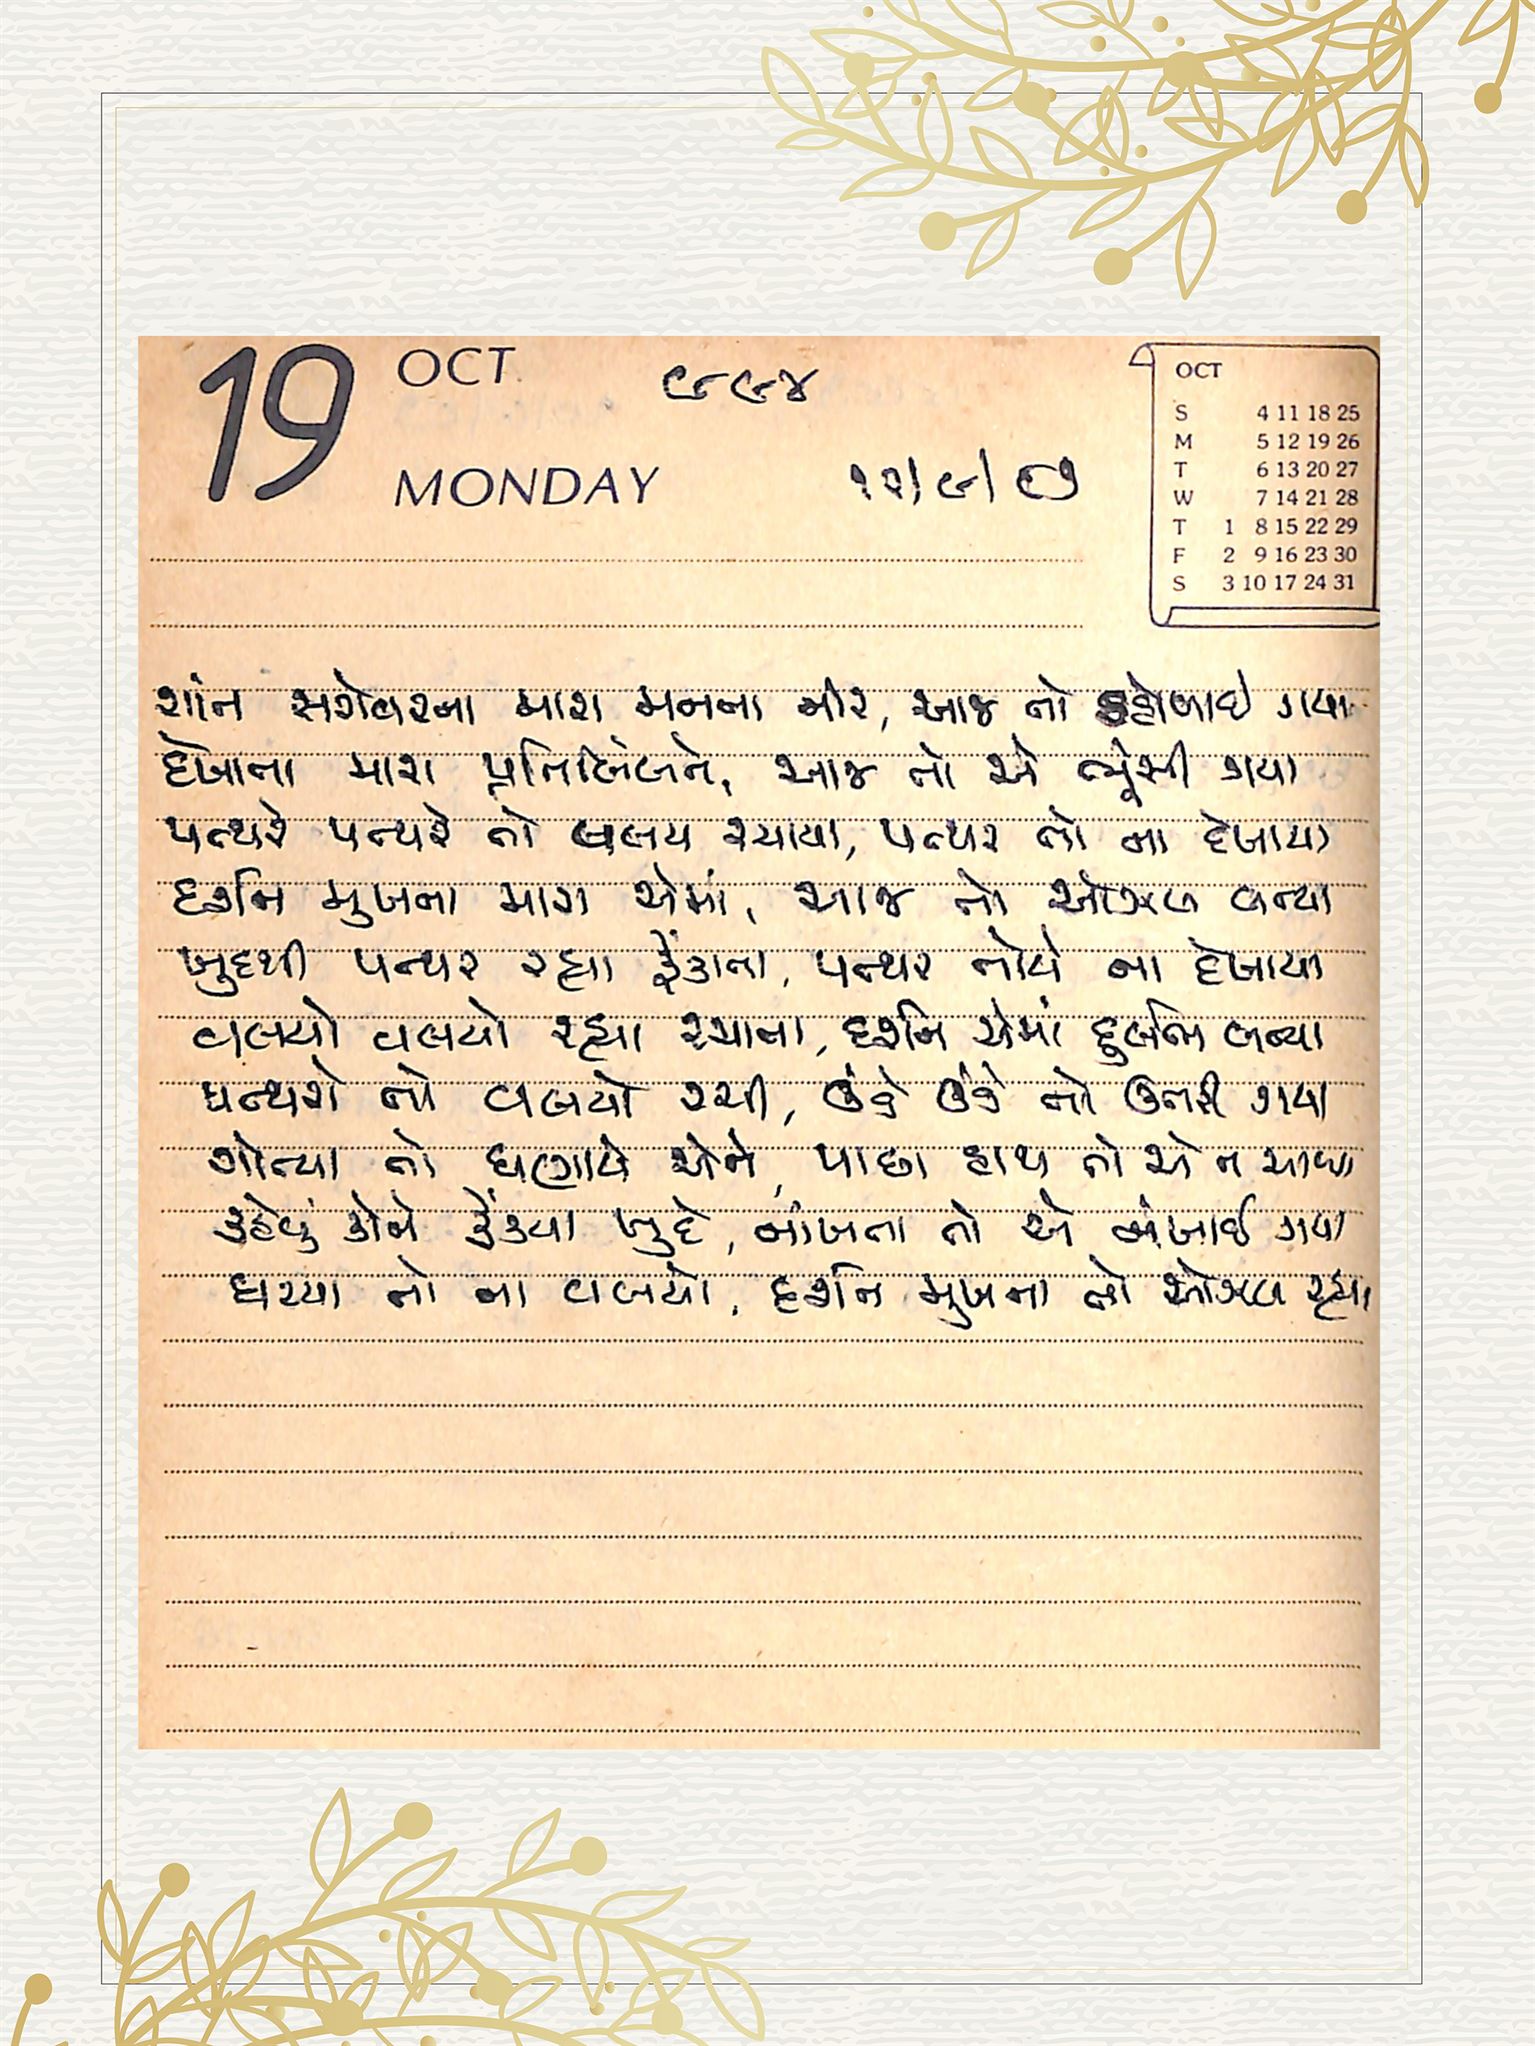 19 OCT ૯૯૪
MONDAY ૧૨/૯/૮૭
OCT
S 4 11 18 25
M 5 12 19 26
T 6 13 20 27
W 7 14 21 28
T 1 8 15 22 29
F 2 9 16 23 30
S 3 10 17 24 31
શાંત સરોવરના મારા મનના નીર, આજ તો ડહોળાઈ ગયા
દેખાતા મારા પ્રતિબિંબને, આજ તો એ ભૂંસી ગયા
પત્થરે પત્થરે તો વલય રચાયા, પત્થર તો ના દેખાયા
દર્શન મુખના મારા એમાં, આજ તો ઓઝલ બન્યા
ખુદથી પત્થર રહ્યા ફેંકાતા, પત્થર તોયે ના દેખાયા
વલયો વલયો રહ્યા રચાતા, દર્શન એમાં દુર્લભ બન્યા
પત્થરો તો વલયો રચી, ઉંડે ઉંડે તો ઉતરી ગયા
ગોત્યા તો ઘણાયે એને, પાછા હાથ તો એ ન આવ્યા
કહેવું કોને ફેંક્યા ખુદે, નાંખતા તો એ નંખાઈ ગયા
ધરયા તો ના વલયો, દર્શન મુખના તો ઓઝલ રહ્યા